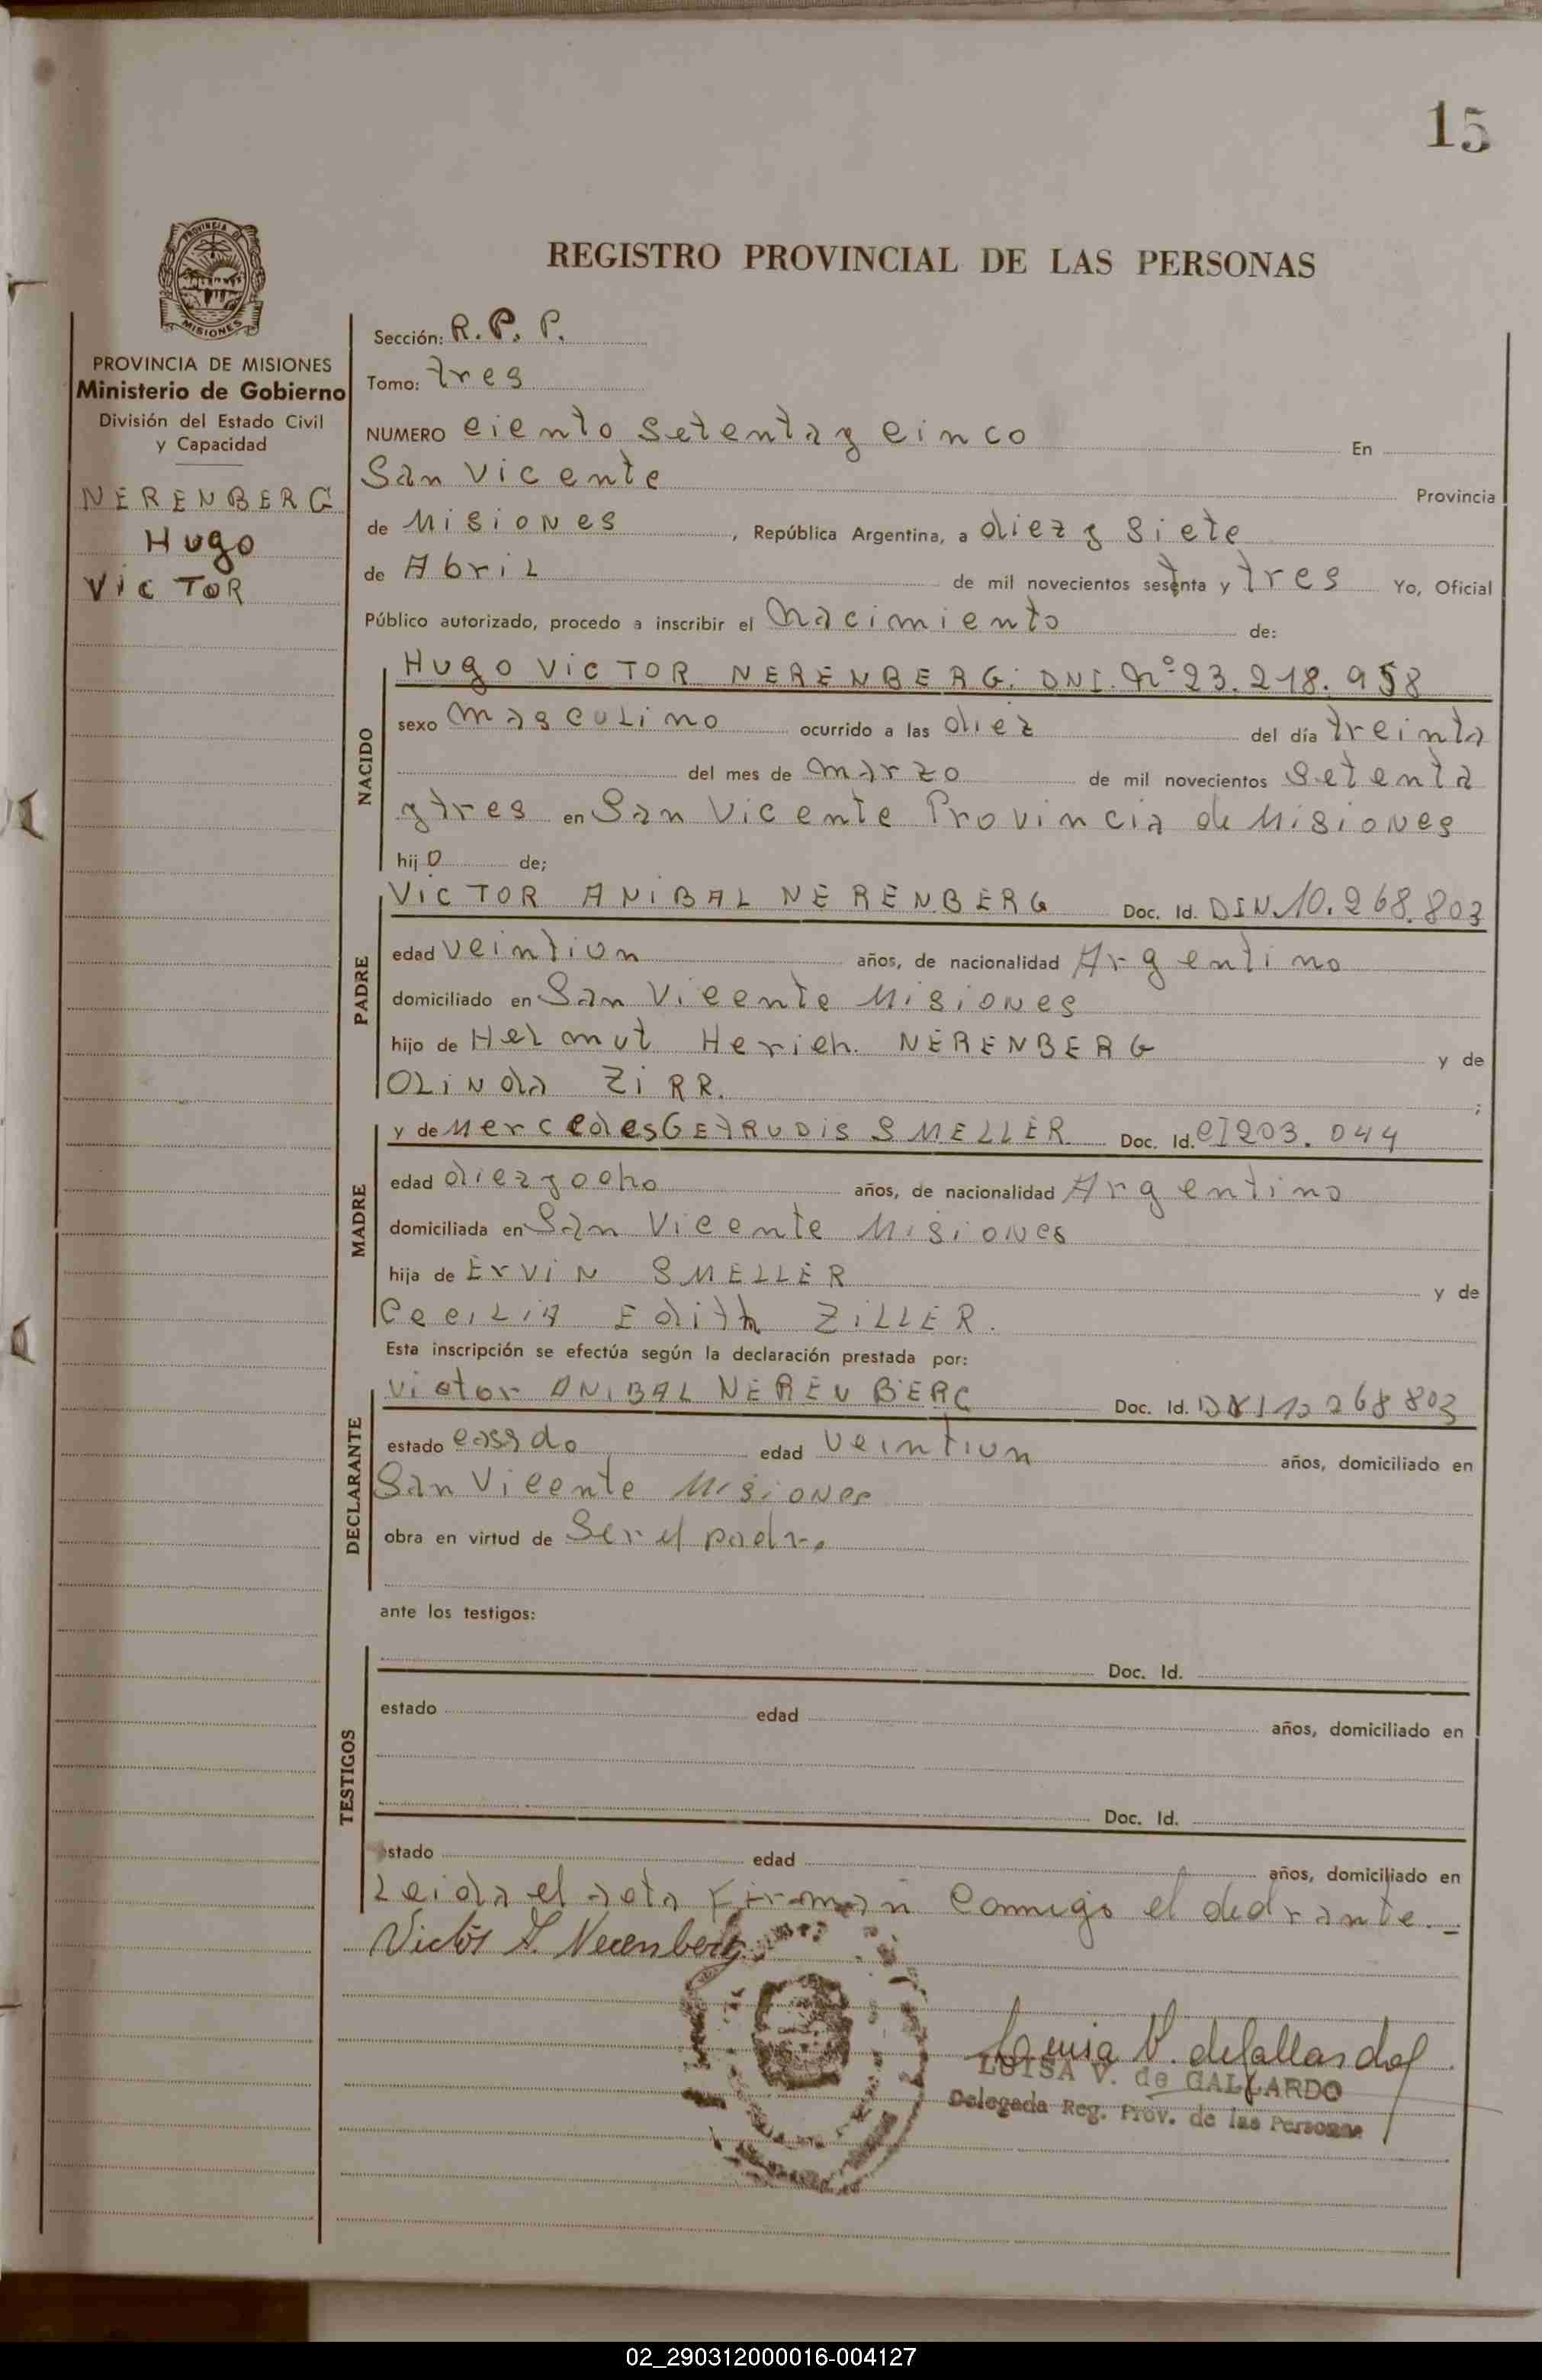 15
REGISTRO PROVINCIAL DE LAS PERSONAS
PROVINCIA DE
MISIONES
PROVINCIA DE MISIONES
Ministerio de Gobierno
División del Estado Civil
y Capacidad
NERENBERG
Hugo
VicTOR
Sección: R. P. P.
Tomo: tres
NUMERO ciento setenta y cinco En
San Vicente Provincia
de Misiones, República Argentina, a diez y siete
de Abril de mil novecientos setenta y tres Yo, Oficial
Público autorizado, procedo a inscribir el Nacimiento de:
NACIDO
Hugo VicTOR NERENBERG: DNI. Nº 23.218.958
sexo masculino ocurrido a las diez del día treinta
del mes de marzo de mil novecientos setenta
y tres en San Vicente Provincia de Misiones
hijo de;
PADRE
VicTOR ANiBAL NERENBERG Doc. Id. DIN 10.268.803
edad veintiun años, de nacionalidad Argentino
domiciliado en San Vicente Misiones
hijo de Helmut Herich NERENBERG y de
OLiNda ZiRR.;
MADRE
y de Mercedes GETRUDiS SMELLER Doc. Id. CI 203.044
edad diez y ocho años, de nacionalidad Argentino
domiciliada en San Vicente Misiones
hija de ErViN SMELLER y de
CeciLiA Edith ZiLLER.
Esta inscripción se efectúa según la declaración prestada por:
DECLARANTE
Victor ANiBAL NERENBERG Doc. Id. DNI 10 268 803
estado casado edad veintiun años, domiciliado en
San Vicente Misiones
obra en virtud de Ser el padre
ante los testigos:
TESTIGOS
Doc. Id.
estado edad años, domiciliado en
Doc. Id.
estado edad años, domiciliado en
Leida el acta firman conmigo el declarante.-
Victor A. Nerenberg
Luisa V. de Gallardo
LUISA V. de GALLARDO
Delegada Reg. Prov. de las Personas
02_290312000016-004127